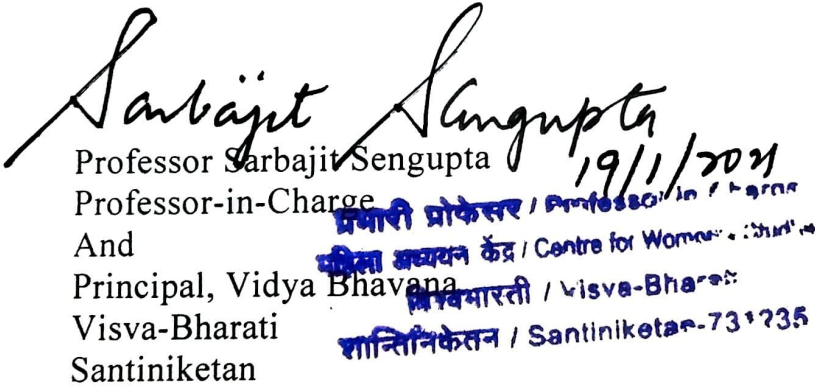 Sarbajit Sengupta
19/1/2021
Professor Sarbajit Sengupta
Professor-in-Charge
And
Principal, Vidya Bhavana
Visva-Bharati
Santiniketan
प्रभारी प्रोफेसर / Professor in Charge
महिला अध्ययन केंद्र / Centre for Women's Studies
विश्वभारती / Visva-Bharati
शान्तिनिकेतन / Santiniketan-731235